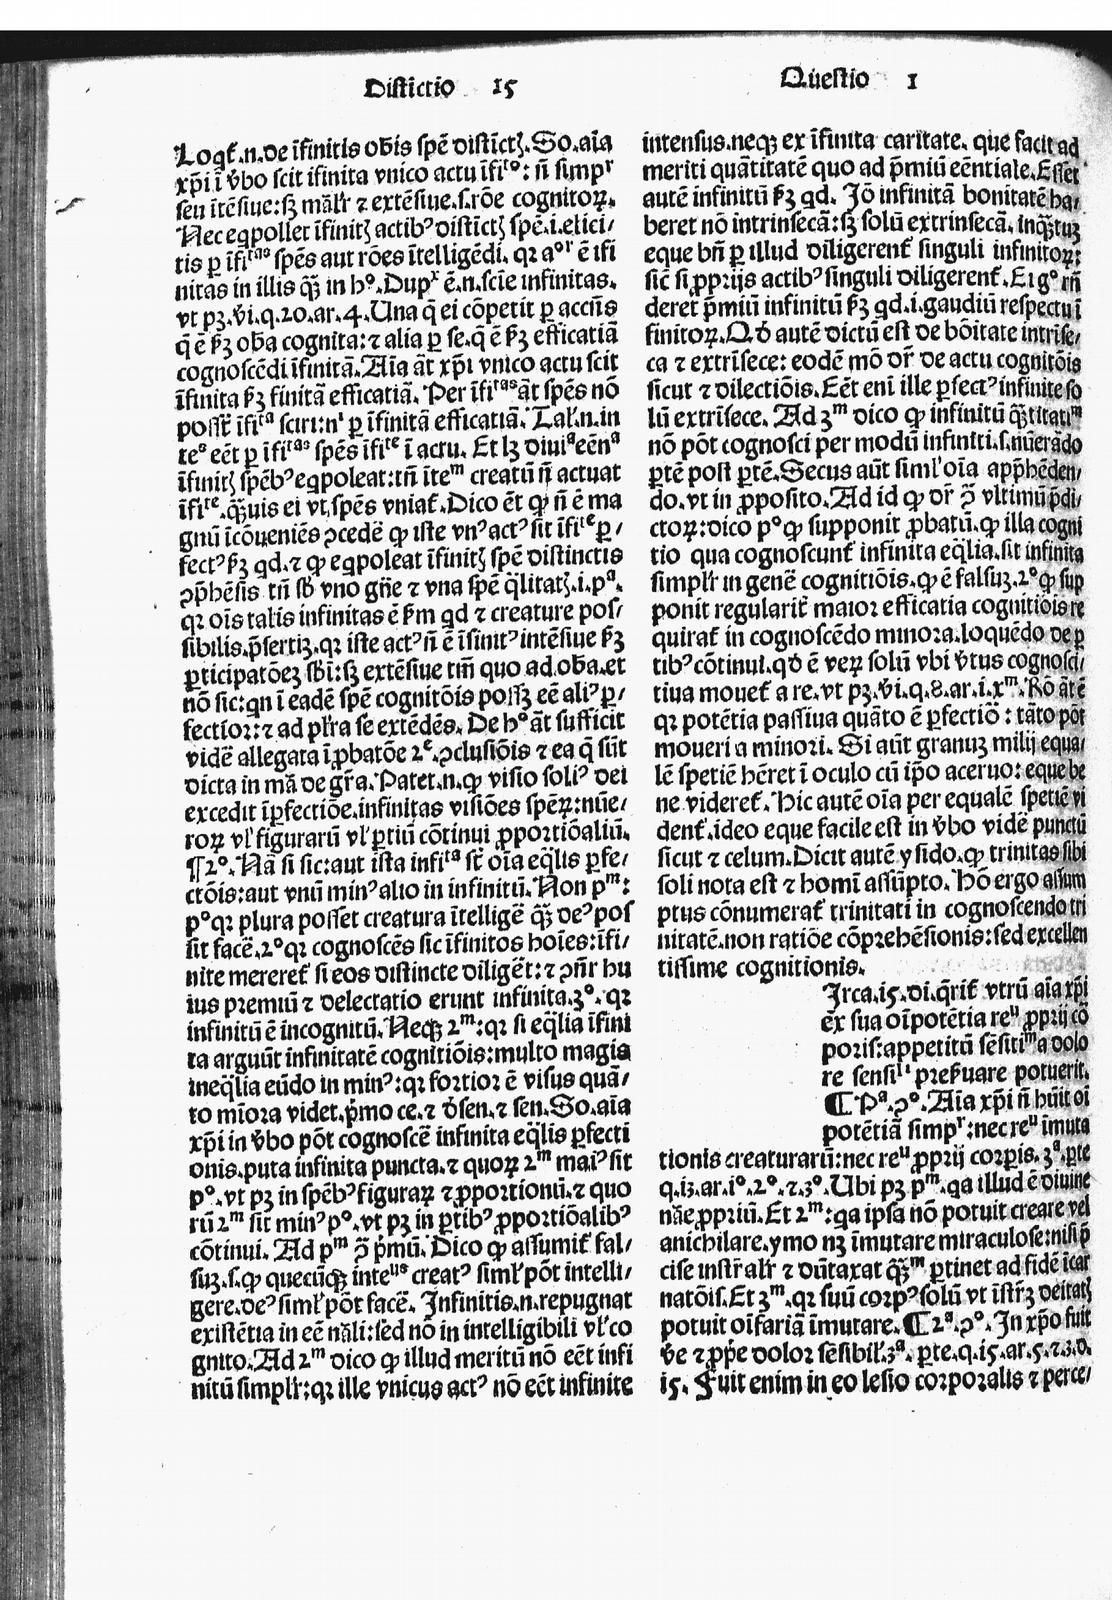 Distictio 15
Questio 1
Loqt̃.n.de ĩfinitis obĩs spẽ distĩctꝭ.So.aĩa
xp̃i ĩ v̾bo scit ĩfinita vnico actu ĩfiᵗᵒ: ñ simpʳ
seu ĩtẽsiue:sꝫ mãlr̃ ⁊ extẽsiue.s.rõe cognitoꝝ.
Nec eqpollet ĩfinitꝭ actibꝰ distĩctꝭ spẽ.i.elici/
tis ꝑ ĩfiᵗᵃˢ spẽs aut rões ĩtelligẽdi. qꝛ aᵒʳ ẽ ĩfi
nitas in illis qꝫ̃ in hᵒ.Dupˣ ẽ.n.scĩe infinitas.
vt pꝫ.v̾i.q.20.ar.4.Una q̃ ei cõpetit ꝑ accñs
q̃ ẽ ẜꝫ obãa cognita:⁊ alia ꝑ se.q̃ ẽ ẜꝫ efficatiã
cognoscẽdi ĩfinitã.Aĩa ãt xp̃i vnico actu scit
ĩfinita ẜꝫ finitã efficatiã. Per ĩfiᵗᵃˢ ãt spẽs nõ
possт̃ ĩfiᵗᵃ sciri:nⁱ ꝑ ĩfinitã efficatiã. Tal̃.n.in
teᵃ eẽt ꝑ ĩfiᵗᵃˢ spẽs ĩfiᵗᵉ ĩ actu. Et lꝫ diuiᵃ eẽnᵃ
ĩfinitꝭ spẽbꝰ eqpoleat:tñ ĩteᵐ creatũ ñ actuat
ĩfiᵗᵉ.qꝫ̃uis ei vt spẽs vniat̃.Dico ẽt ꝙ ñ ẽ ma
gnũ ĩcõueniẽs ꝯcedẽ ꝙ iste vnꝰ actꝰ sit ĩfiᵗᵉ ꝑ/
fectꝰ ẜꝫ qd.⁊ ꝙ eqpoleat ĩfinitꝭ spẽ distinctis
ꝯp̃hẽsis tñ sb̃ vno gñe ⁊ vna spẽ q̃litatꝭ.i.pᵃ.
qꝛ oĩs talis infinitas ẽ ẜm qd ⁊ creature pos/
sibilis.p̃sertiꝫ.qꝛ iste actꝰ ñ ẽ ĩfinitꝰ intẽsiue ẜꝫ
ꝑticipatõeꝫ sbĩ:sꝫ extẽsiue tm̃ quo ad.obãa.et
nõ sic:qn ĩ eadẽ spẽ cognitõis possꝫ eẽ aliꝰ ꝑ/
fectior:⁊ ad pl̃ra se extẽdẽs. De hᵒ ãt sufficit
vidẽ allegata ĩ ꝓbatõe 2ᵉ.ꝯclusiõis ⁊ ea q̃ sũt
dicta in mã de gr̃a.Patet.n.ꝙ visio soliꝰ dei
excedit ĩꝑfectiõe.infinitas visiões spẽꝝ:nũe/
roꝝ vl̃ figurarũ vl̃ ꝑtiũ cõtinui ꝓportiõaliũ.
¶2ᵒ.Nã si sic:aut ista infiᵗᵃ st̃ oĩa eq̃lis ꝑfe/
ctõis:aut vnũ minꝰ alio in infinitũ.Non pᵐ:
pᵒ qꝛ plura posset creatura ĩtelligẽ qꝫ̃ deꝰ pos
sit facẽ.2ᵒ qꝛ cognoscẽs sic ĩfinitos hoĩes:ĩfi/
nite mereret̃ si eos distincte diligẽt:⁊ ꝯñr hu
ius premiũ ⁊ delectatio erunt infinita.3ᵒ. qꝛ
infinitũ ẽ incognitũ.Neqꝫ 2ᵐ:qꝛ si eq̃lia ĩfini
ta arguũt infinitatẽ cognitiõis:multo magis
ineq̃lia eũdo in minꝰ:qꝛ fortior ẽ visus quã/
to mĩora videt.p̃mo ce.⁊ d̾ sen.⁊ sen.So.aĩa
xp̃i in v̾bo põt cognoscẽ infinita eq̃lis ꝑfecti
onis.puta infinita puncta.⁊ quoꝝ 2ᵐ maiꝰ sit
pᵒ.vt pꝫ in spẽbꝰ figuraꝝ ⁊ ꝓportionũ.⁊ quo
rũ 2ᵐ sit minꝰ pᵒ.vt pꝫ in ꝑtibꝰ ꝓportiõalibꝰ
cõtinui. Ad pᵐ ꝯ̃ p̃mũ. Dico ꝙ assumit̃ fal/
suꝫ.s.ꝙ quecũqꝫ inteᵘˢ creatꝰ siml̃ põt intelli/
gere.deꝰ siml̃ põt facẽ. Infinitis.n.repugnat
existẽtia in eẽ nãli:sed nõ in intelligibili vl̃ co
gnito.Ad 2ᵐ dico ꝙ illud meritũ nõ eẽt infi
nitũ simplr̃:qꝛ ille vnicus actꝰ nõ eẽt infinite
intensus.neqꝫ ex ĩfinita caritate. que facit ad
meriti quãtitatẽ quo ad p̃miũ eẽntiale.Esset
autẽ infinitũ ẜꝫ qd. Iõ infinitã bonitatẽ ha/
beret nõ intrinsecã:sꝫ solũ extrinsecã. inqꝫ̃tuꝫ
eque bñ ꝑ illud diligerent̃ singuli infinitoꝝ:
sic̃ si ꝓprijs actibꝰ singuli diligerent̃.Ei gᵒ rñ
deret p̃miũ infinitũ ẜꝫ qd.i.gaudiũ respectu ĩ
finitoꝝ.Qd̾ autẽ dictũ est de bõitate intrĩse/
ca ⁊ extrĩsece: eodẽ mõ dr̃ de actu cognitõis
sicut ⁊ dilectiõis.Eẽt enĩ ille ꝑfectꝰ infinite so
lũ extrĩsece. Ad 3ᵐ dico ꝙ infinitũ qꝫ̃titatiᵐ
nõ põt cognosci per modũ infiniti.s.nũerãdo
ꝑtẽ post ꝑtẽ.Secus aũt siml̃ oĩa app̃hẽden/
do.vt in ꝓposito.Ad id ꝙ dr̃ ꝯ̃ vltimũ p̃di/
ctoꝝ:dico pᵒ ꝙ supponit ꝓbatũ.ꝙ illa cogni
tio qua cognoscunt̃ infinita eq̃lia.sit infinita
simplr̃ in genẽ cognitiõis.ꝙ ẽ falsuꝫ.2ᵒ ꝙ sup
ponit regularit̃ maior efficatia cognitiõis re
quirat̃ in cognoscẽdo minora.loquẽdo de ꝑ
tibꝰ cõtinui.qd̾ ẽ veꝝ solũ vbi v̾tus cognosci/
tiua mouet̃ a re.vt pꝫ.v̾i.q.8.ar.i.xᵐ.Rõ ãt ẽ
qꝛ potẽtia passiua quãto ẽ ꝑfectiõ: tãto põt
moueri a minori. Si aũt granuꝫ milij equa/
lẽ spetiẽ hẽret ĩ oculo cũ ip̃o aceruo: eque be
ne videret̃. Hic autẽ oĩa per equalẽ spetiẽ vi
dent̃.ideo eque facile est in v̾bo vidẽ punctũ
sicut ⁊ celum.Dicit autẽ ysido.ꝙ trinitas sibi
soli nota est ⁊ homĩ assũpto. Hõ ergo assum
ptus cõnumerat̃ trinitati in cognoscendo tri
nitatẽ.non ratiõe cõprehẽsionis:sed excellen
tissime cognitionis.
Irca.i5.di.q̃rit̃ vtrũ aĩa xp̃i
ex sua oĩpotẽtia reᵘ ꝓprij cõ
poris:appetitũ sẽsitiᵐ a dolo
re sensiˡⁱ preẜuare potuerit.
¶Pᵃ.ꝯᵒ.Aĩa xp̃i ñ hũit oĩ
potẽtiã simpʳ:nec reᵘ ĩmuta
tionis creaturarũ:nec reᵘ ꝓprij corꝑis.3ᵃ.ꝑte
q.i3.ar.iᵒ.2ᵒ.⁊.3ᵒ.Ubi pꝫ pᵐ.qa illud ẽ diuine
nãe ꝓpriũ.Et 2ᵐ:qa ipsa nõ potuit creare vel
anichilare.ymo nꝫ ĩmutare miraculose:nisi p̃
cise instr̃alr̃ ⁊ dũtaxat qꝫ̃ᵐ ꝑtinet ad fidẽ ĩcar
natõis.Et 3ᵐ.qꝛ suũ corpꝰ solũ vt ĩstr̃ꝫ deitatꝭ
potuit oĩfariã ĩmutare.¶2ᵃ.ꝯᵒ.In xp̃o fuit
v̾e ⁊ ꝓp̃e dolor sẽsibil̃.3ᵃ. ꝑte.q.i5.ar.5.⁊.3.d.
i5. Fuit enim in eo lesio corporalis ⁊ perce/